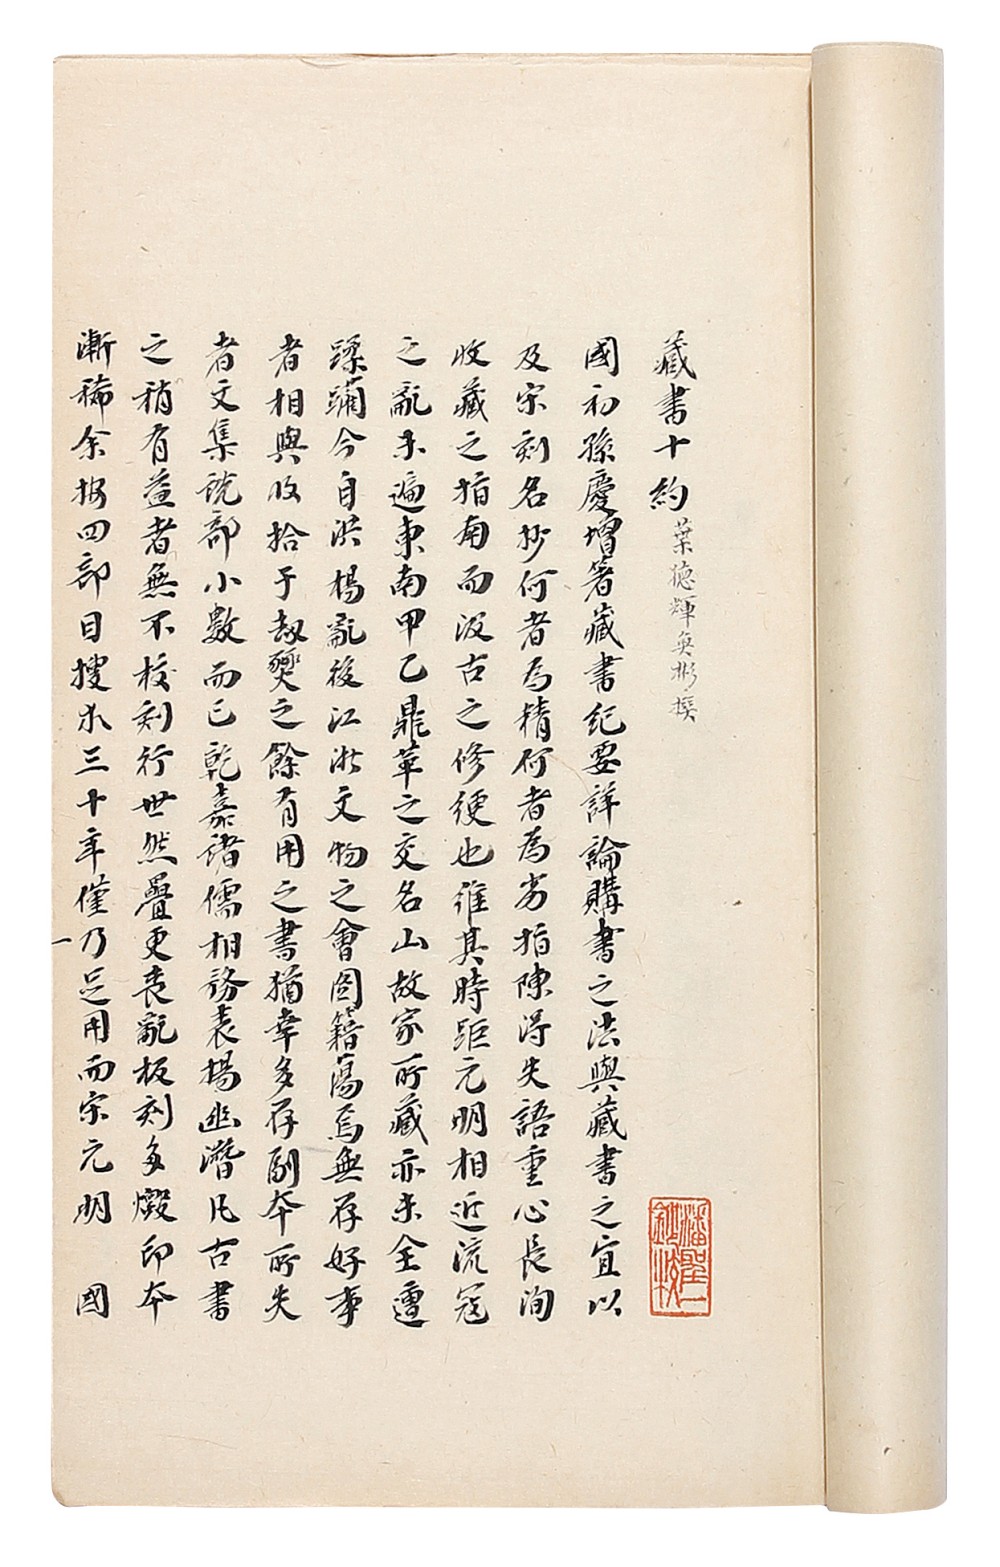 藏書十約 葉德輝奐彬撰
國初孫慶增箸藏書紀要詳論購書之法與藏書之宜以
及宋刻名抄何者為精何者為劣指陳得失語重心長洵
收藏之指南而汲古之修綆也惟其時距元明相近流寇
之亂未遍東南甲乙鼎革之交名山故家所藏亦未全遭
蹂躪今自洪楊亂後江浙文物之會圖籍蕩焉無存好事
者相與收拾于劫燹之餘有用之書猶幸多存副本所失
者文集說部小數而已乾嘉諸儒相務表揚幽潛凡古書
之稍有益者無不校刻行世然疊更喪亂板刻多燬印本
漸稀余按四部目搜求三十年僅乃足用而宋元明 國
一
潘聖一
鈔校